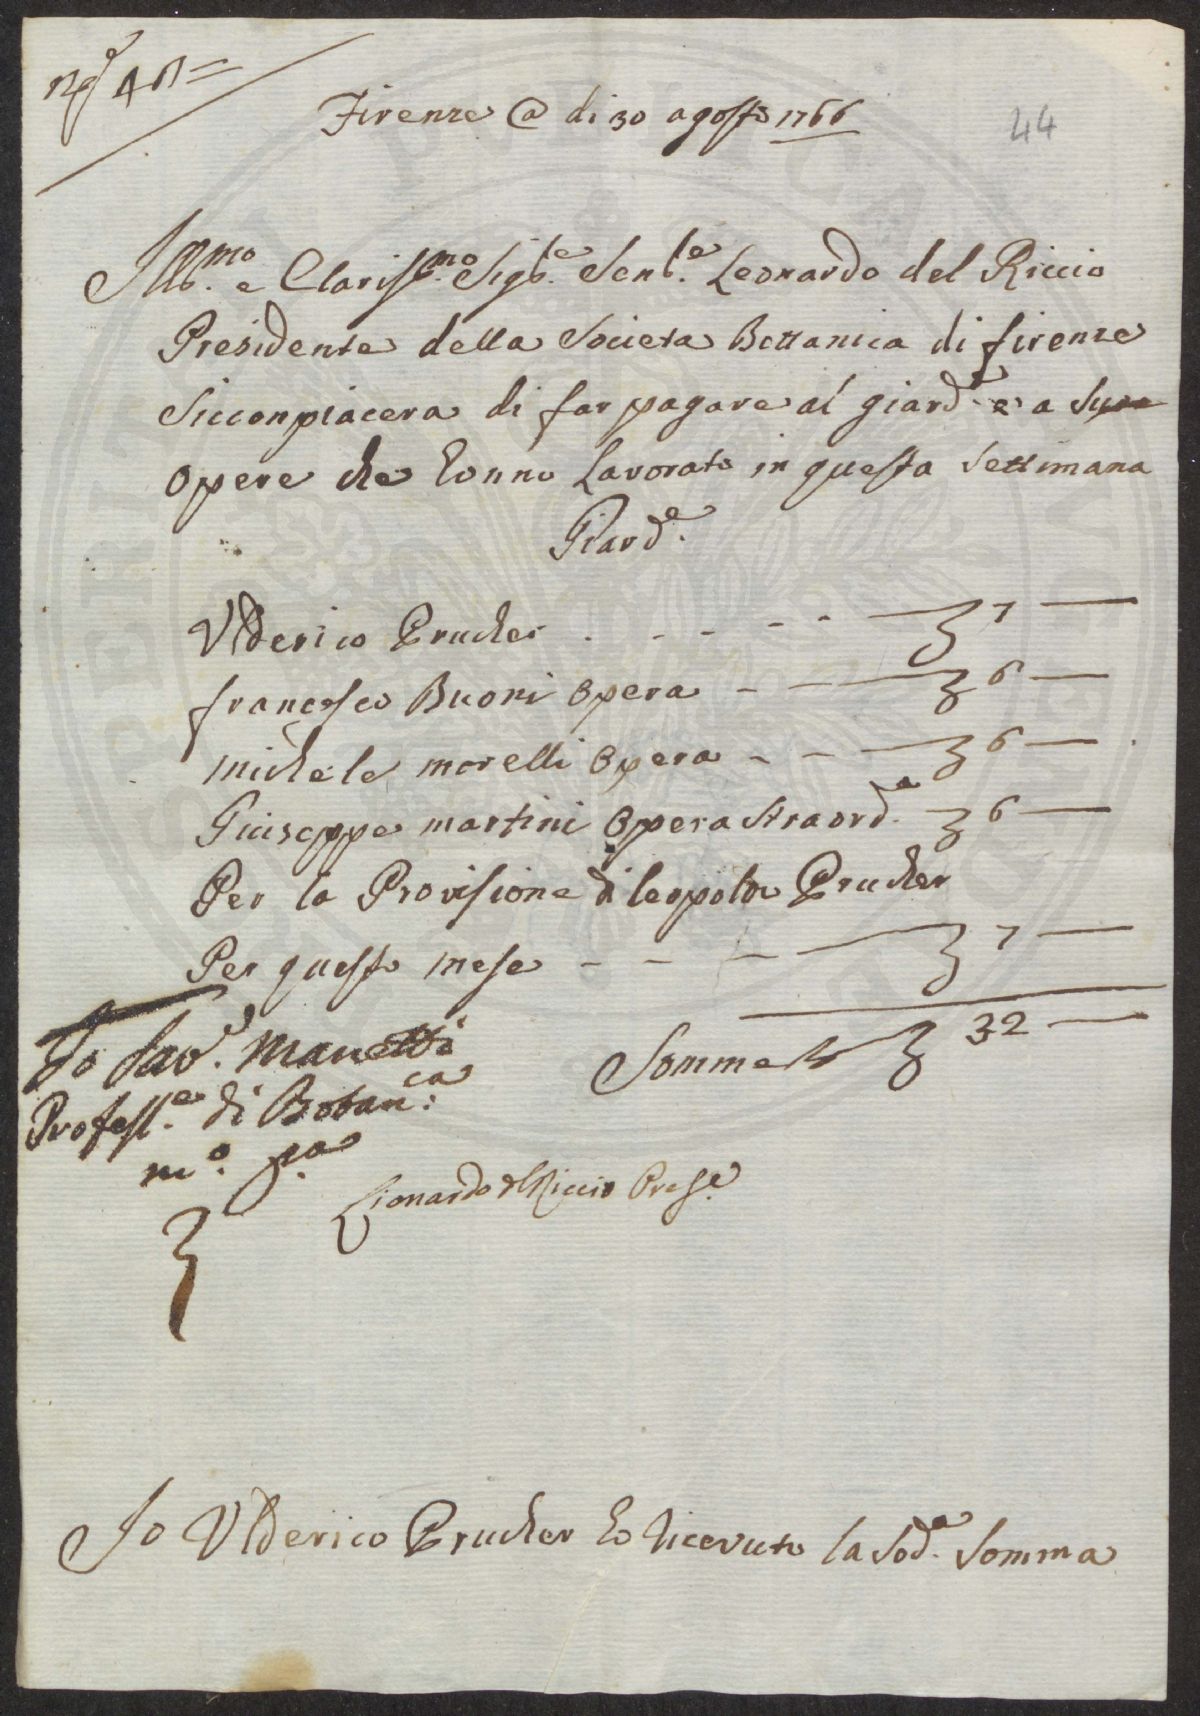 Nº 41=
Firenze @ di 30 agosto 1766
44
Illmo e Clarismo Sigre Senre Leonardo del Riccio
Presidente della Societa Bottanica di firenze
Si conpiacera di far pagare al giarde e a Sua
opere che Lonno Lavorato in questa Settimana
Giarde
Vlderico Prucher . - - - - 7 —
francesco Buoni Opera - — 6 —
michele morelli Opera - - — 6 —
Giuseppe martini Opera Straorda 6 —
Per la Provisione di leopoldo Prucher
Per questo mese - - - — 7 —
Somma 32 —
Io Savo. Manetti
Professe. di Botanca:
mo. pa
Lionardo del Riccio Prese
Io Vlderico Prucher Lo Riceuuto la Soda. Somma